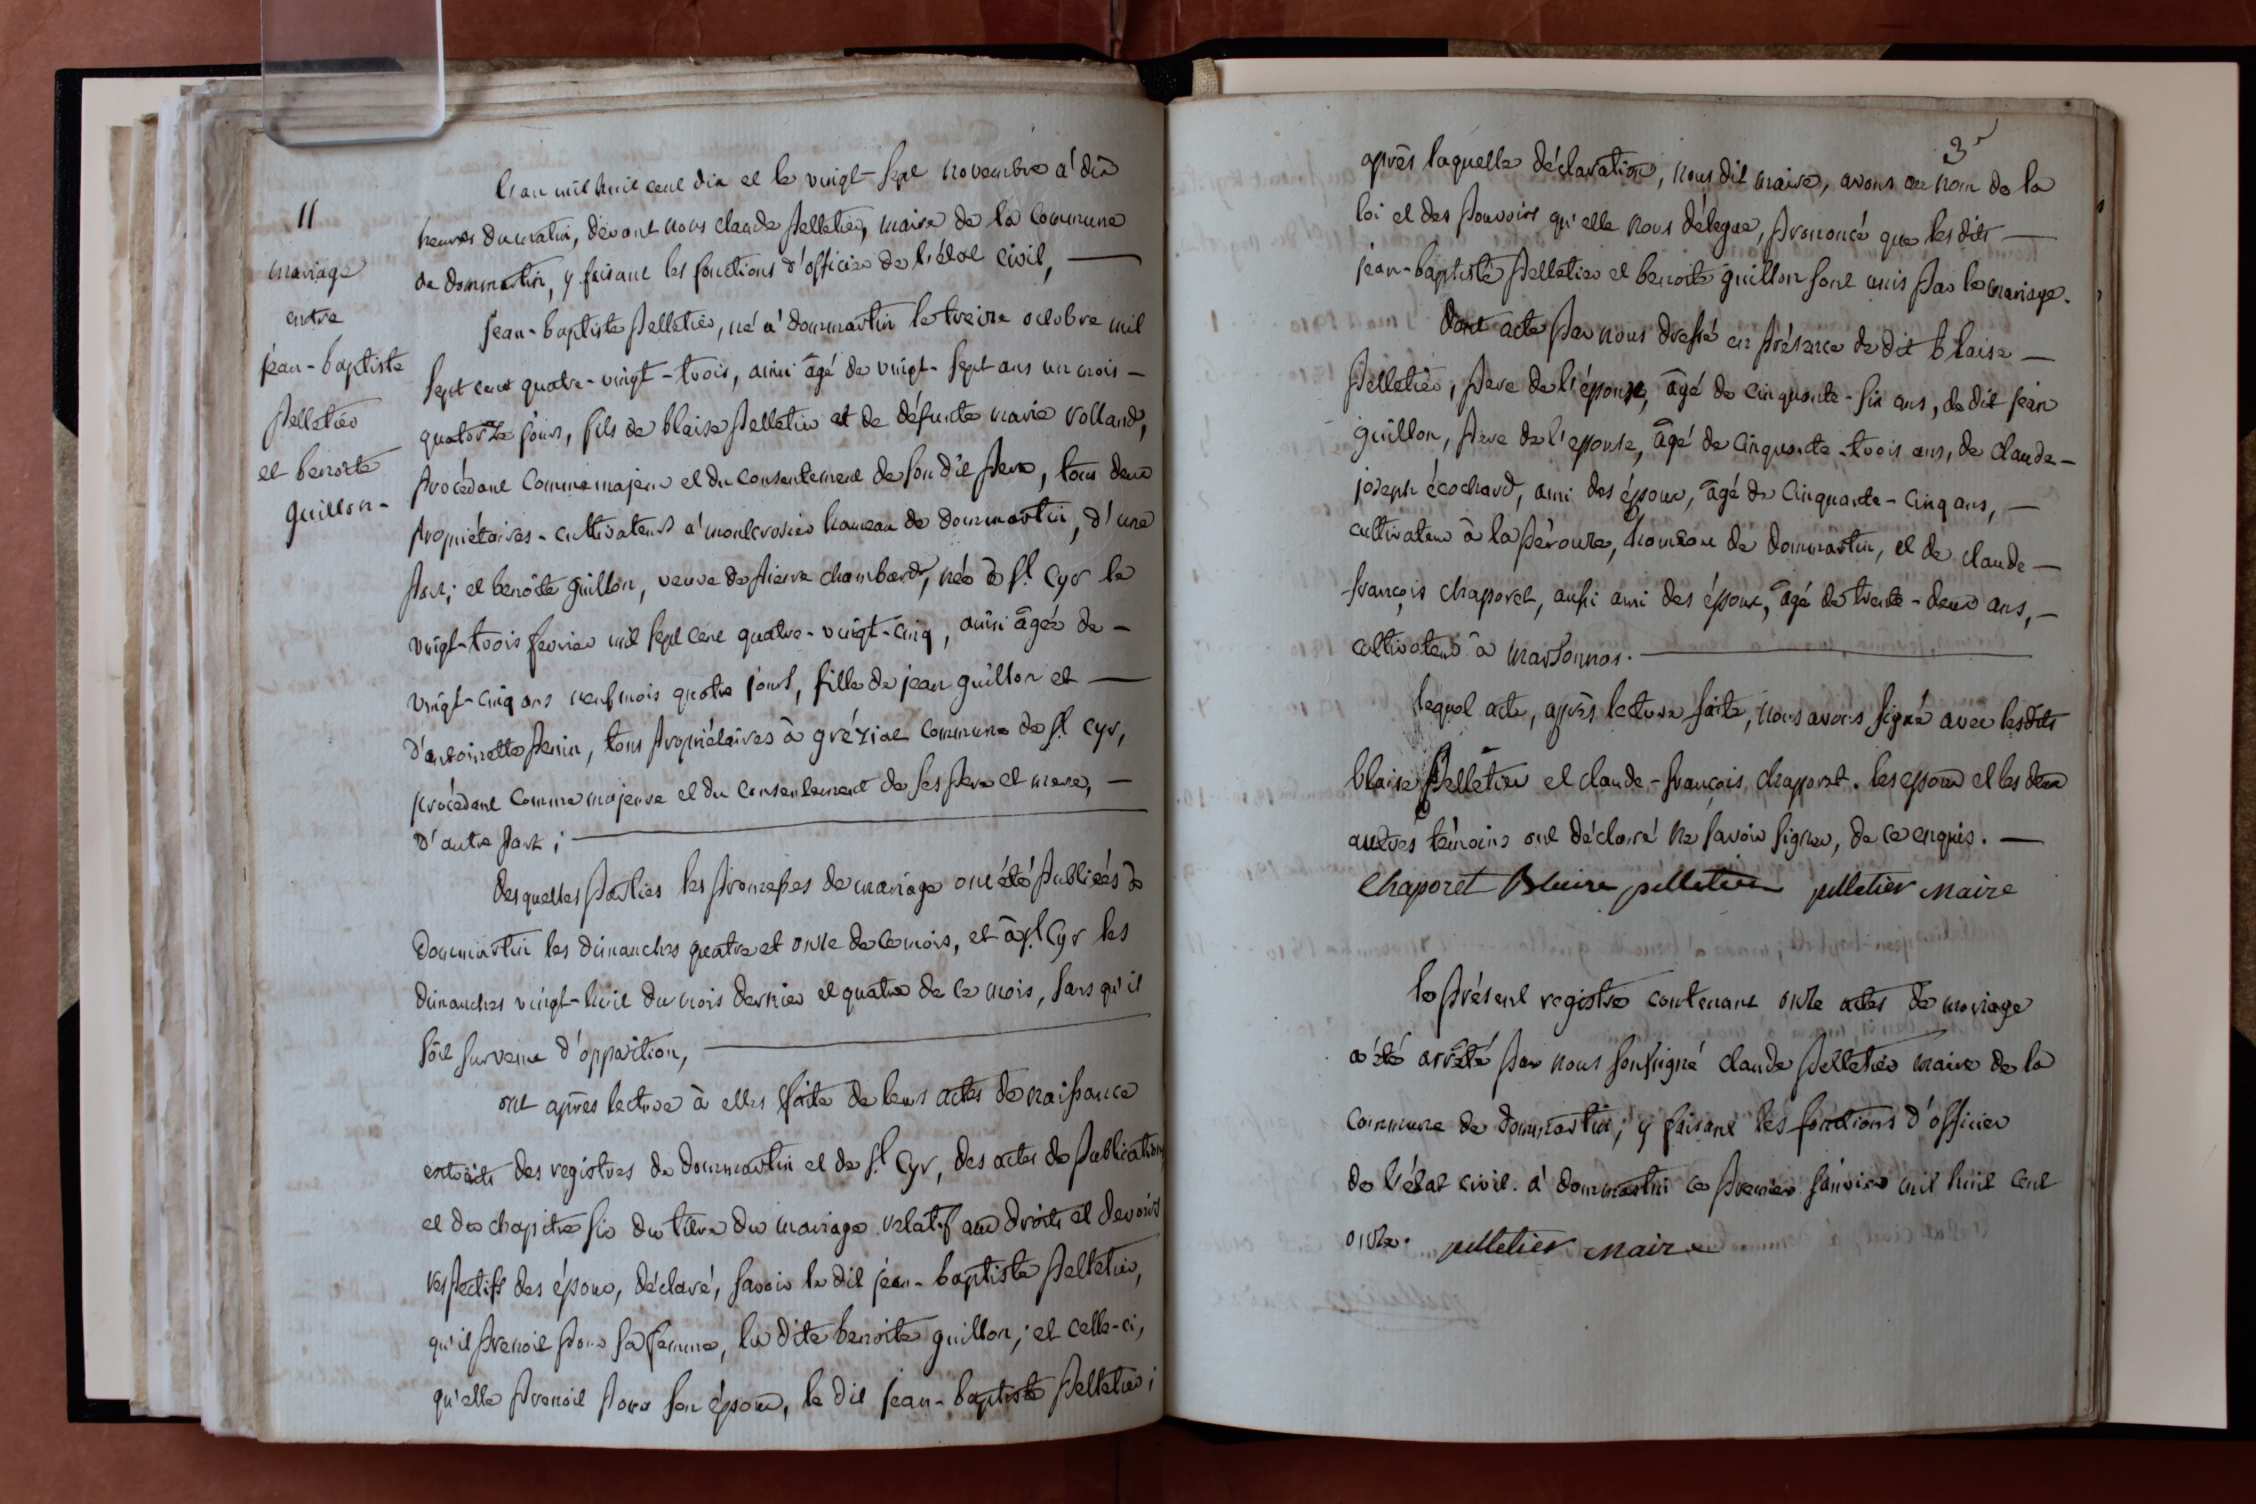 11
mariage
entre
jean-baptiste
pelletier
et benoite
guillon-
l'an mil huit cent dix et le vingt-sept novembre à dix
heures du matin, devant nous claude pelletier, maire de la commune
de dommartin, y faisant les fonctions d'officier de l'état civil,
jean-baptiste pelletier, né à dommartin le treize octobre mil
sept cent quatre-vingt-trois, ainsi âgé de vingt-sept ans un mois
quatorze jours, fils de blaise pelletier et de défunte marie volland,
procédant comme majeur et du consentement de son dit pere, tous deux
propriétaires-cultivateurs à montcrosier hameau de dommartin, d'une
part; et benoîte guillon, veuve de pierre chambard, née à st. Cyr le
vingt-trois fevrier mil sept cent quatre-vingt-cinq, ainsi âgée de
vingt-cinq ans neuf mois quatre jours, fille de jean guillon et
d'antoinette penin, tous propriétaires à gréziat commune de st. cyr,
procédant comme majeure et du consentement de ses pere et mere,
d'autre part;
desquelles parties les promesses de mariage ont été publiées à
dommartin les dimanches quatre et onze de ce mois, et à st. Cyr les
dimanches vingt-huit du mois dernier et quatre de ce mois, sans qu'il
soit survenu d'opposition,
ont après lecture à elles faite de leurs actes de naissance
extraits des registres de dommartin et de st. Cyr, des actes de publication
et du chapitre six du titre du mariage relatif aux droits et devoirs
respectifs des époux, déclaré, savoir le dit jean-baptiste pelletier,
qu'il prenoit pour sa femme, la dite benoite guillon; et celle-ci,
qu'elle prenoit pour son époux, le dit jean-baptiste pelletier;
3
après laquelle déclaration, nous dit maire, avons au nom de la
loi et des pouvoirs qu'elle nous délegue, prononcé que les dits
jean-baptiste pelletier et benoite guillon sont unis par le mariage.
dont acte par nous dressé en présence de dit blaise
pelletier, pere de l'époux, âgé de cinquante-six ans, de dit jean
guillon, pere de l'epouse, âgé de cinquante-trois ans, de claude-
joseph écochard, ami des époux, âgé de cinquante-cinq ans,
cultivateur à la pérouze, hameau de dommartin, et de claude-
françois chaporet, aussi ami des époux, âgé de trente-deux ans,
cultivateur à marsonnas.
lequel acte, après lecture faite, nous avons signé avec lesdits
blaise pelletier et claude-françois chapporet. les epoux et les deux
autres témoins ont déclaré ne savoir signer, de ce enquis.
Chaporet Blaise pelletier pelletier maire
le présent registre contenant onze actes de mariage
a été arrêté par nous soussigné claude pelletier maire de la
commune de dommartin, y faisant les fonctions d'officier
de l'état civil. à dommartin ce premier janvier mil huit cent
onze. pelletier maire